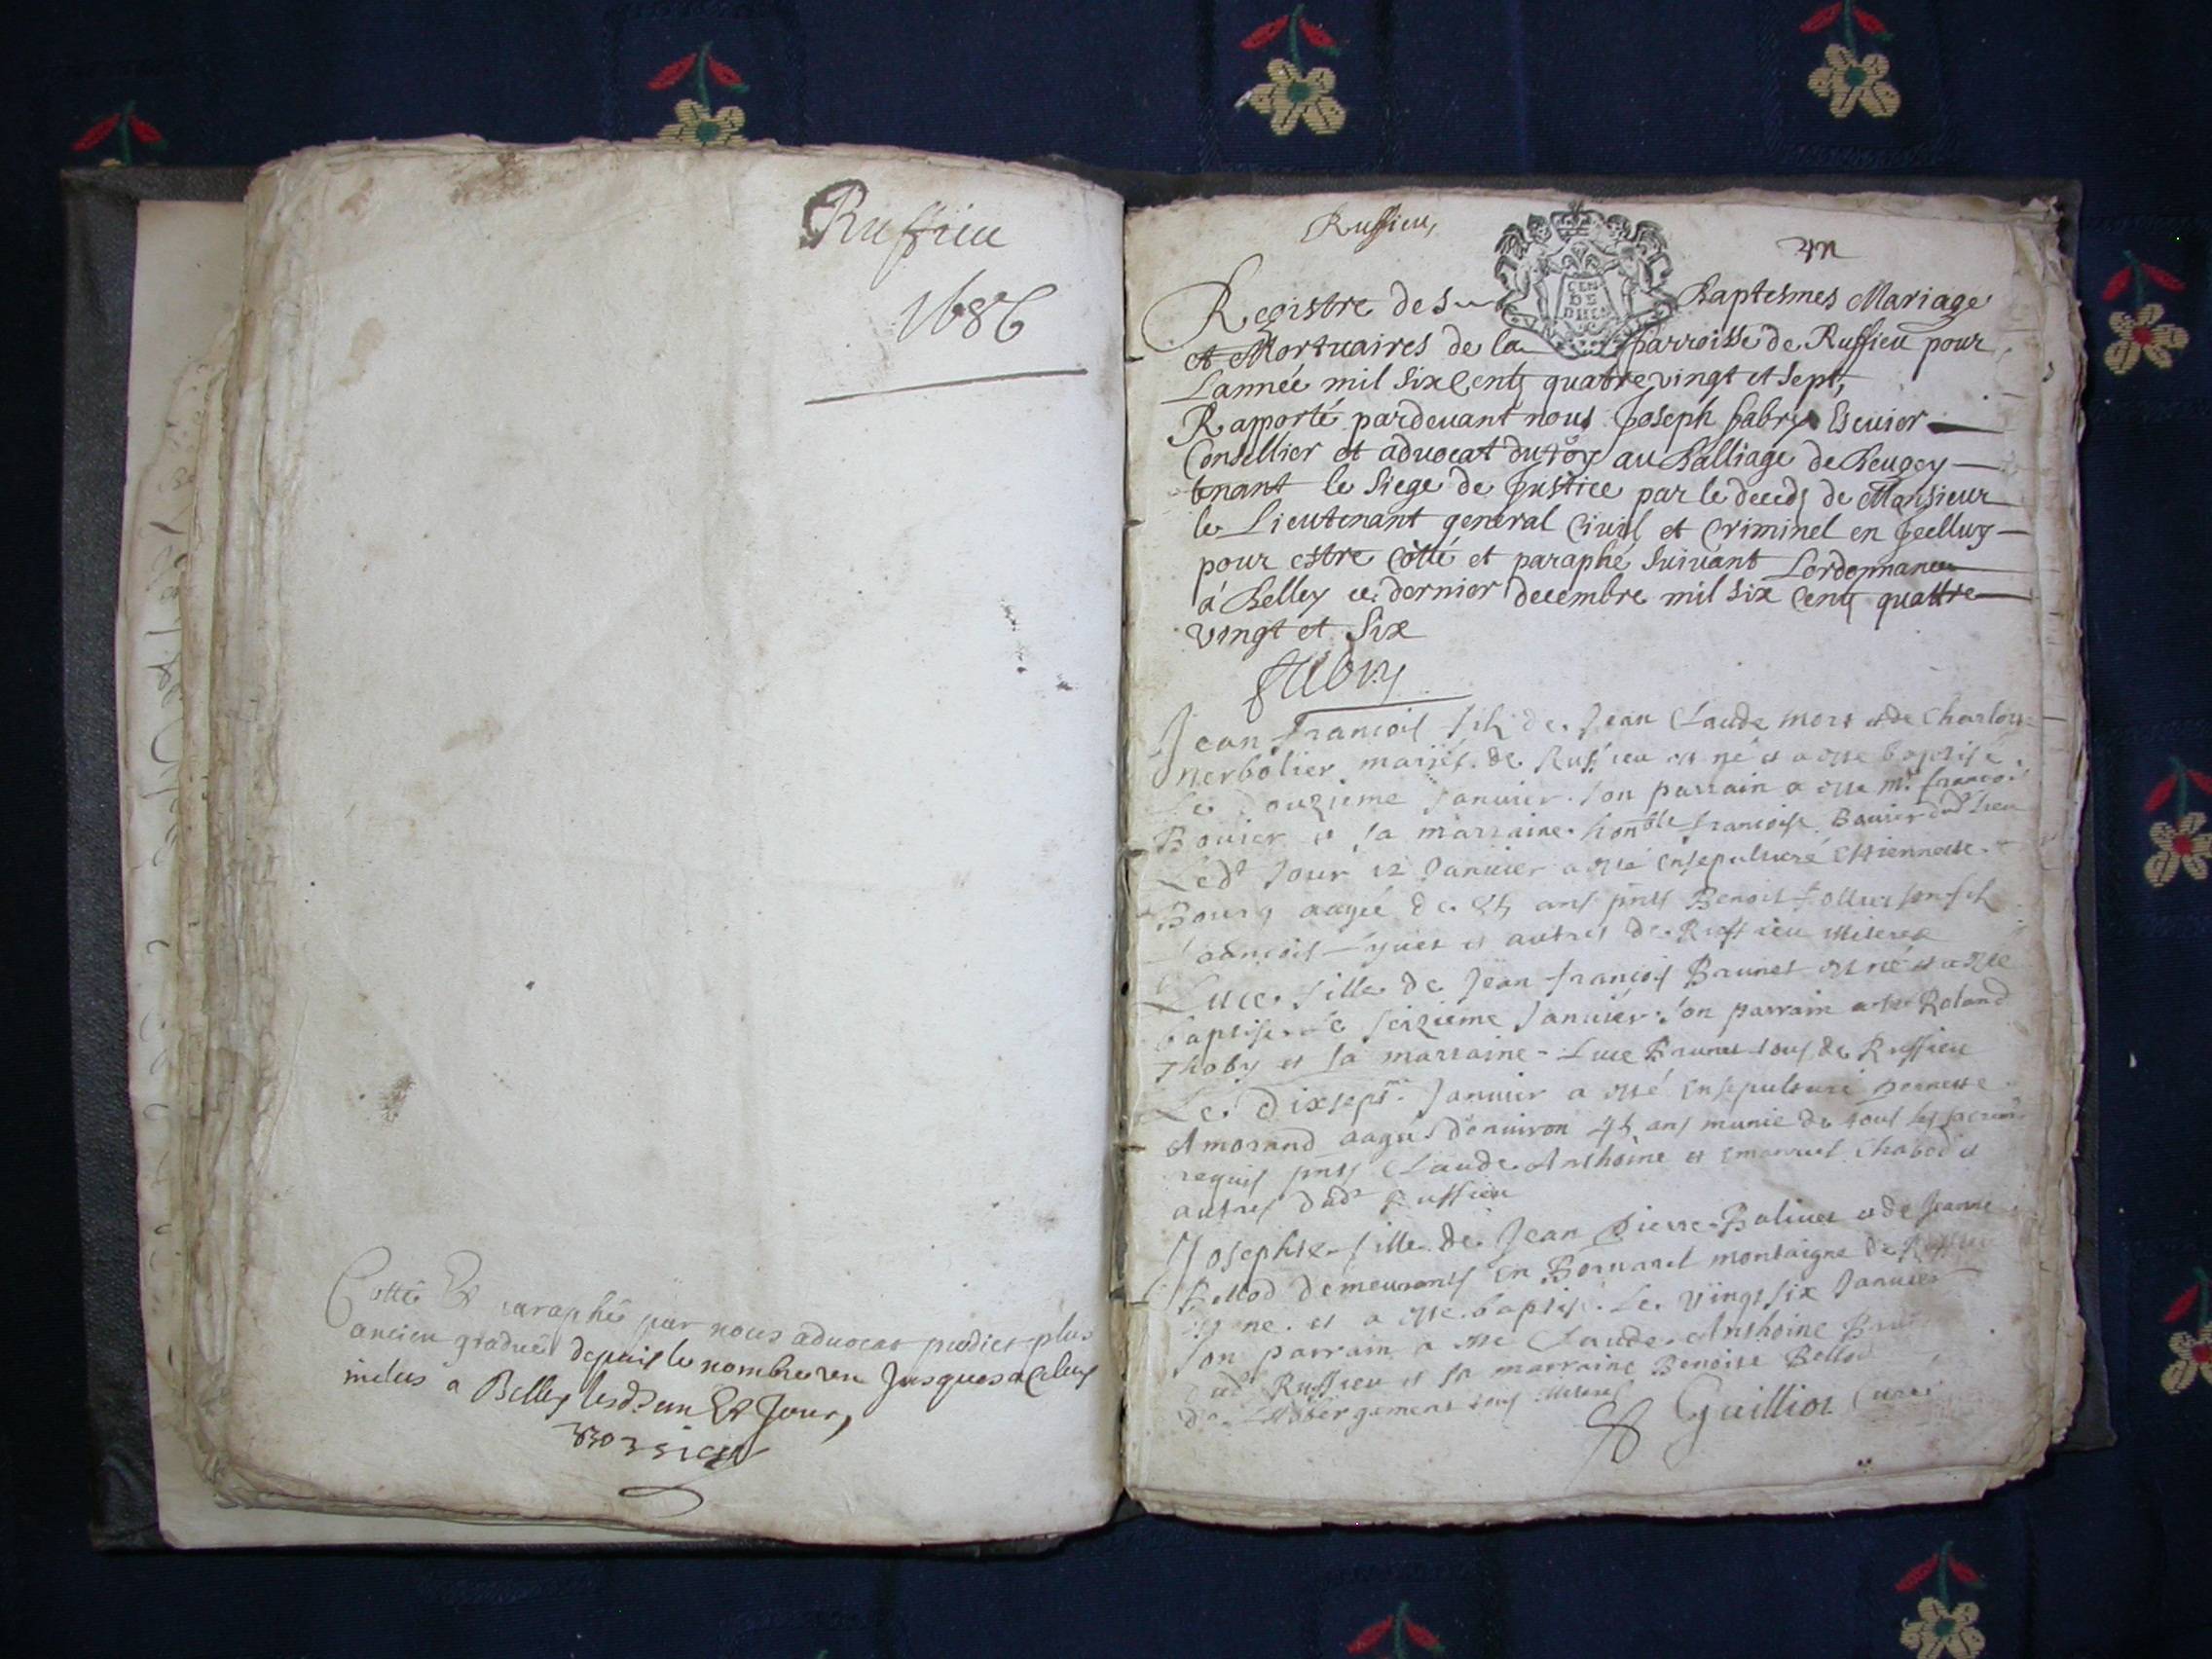 Ruffieu
1686
Cotté Et paraphé par nous advocat predict plus
ancien gradué depuis le nombre un Jusques a celuy
inclus a Belley lesd. an Et Jour,
Ruffieu,
un
Registre des Baptesmes Mariage
et Mortuaires de la parroisse de Ruffieu pour
Lannée mil six Cents quatre vingt et sept,
Rapporté pardevant nous Joseph fabry Escuier
Conseillier et advocat du roy au Balliage de Beugey
tenant le siege de Justice par le deceds de Monsieur
le Lieutenant general Civil et Criminel en Jcelluy
pour estre Cotté et paraphé suivant Lordonnance
à Belley ce dernier decembre mil six Cens quattre
vingt et six
fabry
Jean francois fils de Jean Claude mort et de Charlotte
nerbolier mariés de Ruffieu est né et a esté baptisé
Le Douzieme Janvier son parrain a esté mr francois
Bouier et sa marraine honble francoise Bouier dud lieu
Led Jour 12 Janvier a esté ensepulturé Estiennette
Bourg aagée de ans pnts Benoit son fils
francois et autres de Ruffieu
Luce fille de Jean francois Brunet est né et a esté
baptisé Le seizieme Janvier son parrain a esté Roland
Thoby et sa marraine Luce Brunet tous de Ruffieu
Le Dixsept Janvier a esté ensepulturé
Morand aagée denviron 45 ans munie de tous les sacrem
requis pnts Claude Anthoine et Emanuel Chabod et
autres dud Ruffieu
Josephte fille de Jean Pierre Balivet et de Jeanne
Bellod demeurants en montaigne de Ruffieu
est né et a esté baptisé Le vingt six Janvier
son parrain a esté Claude Anthoine
dud Ruffieu et sa marraine Benoite Bellod
de Labergement tous
Guilliot Curé